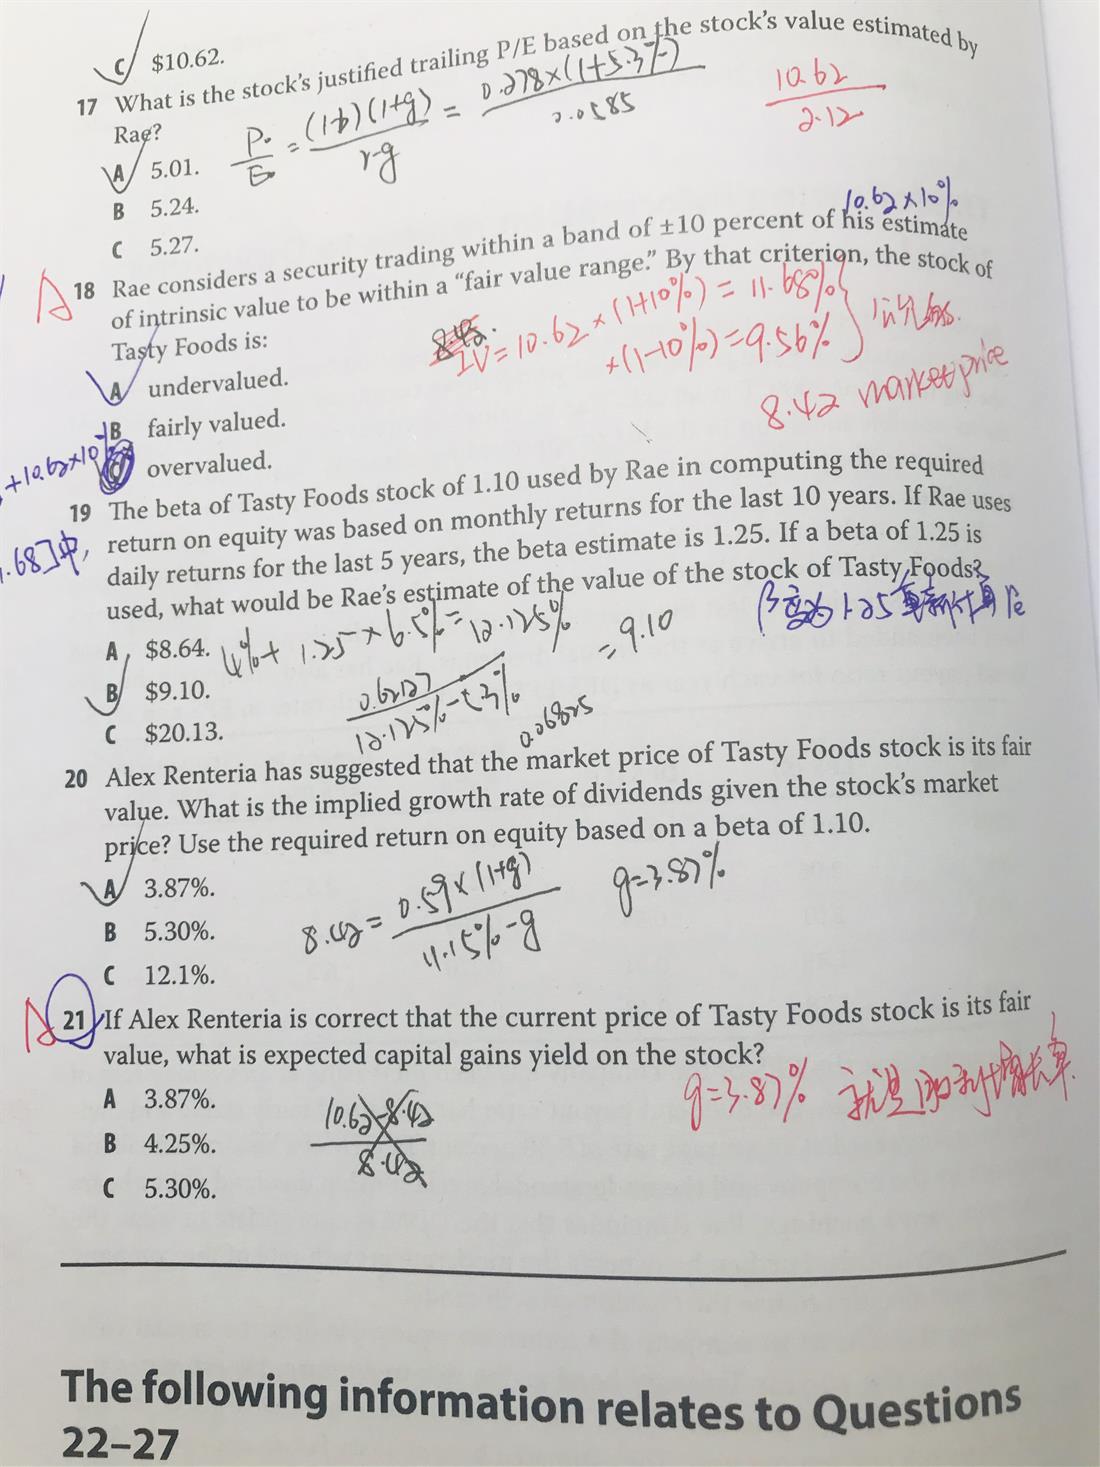 C $10.62.
17 What is the stock's justified trailing P/E based on the stock's value estimated by
Rae?
P₀/E₀ = (1-b)(1+g)/r-g = 0.278×(1+5.3%)/0.0585
10.62/2.12
A 5.01.
B 5.24.
C 5.27.
10.62×10%
A
18 Rae considers a security trading within a band of ±10 percent of his estimate
of intrinsic value to be within a "fair value range." By that criterion, the stock of
Tasty Foods is:
8.42
IV=10.62×(1+10%)=11.68%
×(1-10%)=9.56%
8.42 market price
A undervalued.
B fairly valued.
+10.62×10%
C overvalued.
19 The beta of Tasty Foods stock of 1.10 used by Rae in computing the required
return on equity was based on monthly returns for the last 10 years. If Rae uses
.68]中,
daily returns for the last 5 years, the beta estimate is 1.25. If a beta of 1.25 is
used, what would be Rae's estimate of the value of the stock of Tasty Foods?
β变为1.25重新计算re
A $8.64.
4%+1.25×6.5%=12.125%
B $9.10.
0.62127/12.125%-5.3% =9.10
0.06825
C $20.13.
20 Alex Renteria has suggested that the market price of Tasty Foods stock is its fair
value. What is the implied growth rate of dividends given the stock's market
price? Use the required return on equity based on a beta of 1.10.
A 3.87%.
B 5.30%.
C 12.1%.
8.42=0.59×(1+g)/11.15%-g
g=3.87%
A
21 If Alex Renteria is correct that the current price of Tasty Foods stock is its fair
value, what is expected capital gains yield on the stock?
g=3.87% 就是股利增长率
A 3.87%.
B 4.25%.
C 5.30%.
10.62-8.42/8.42
The following information relates to Questions
22–27